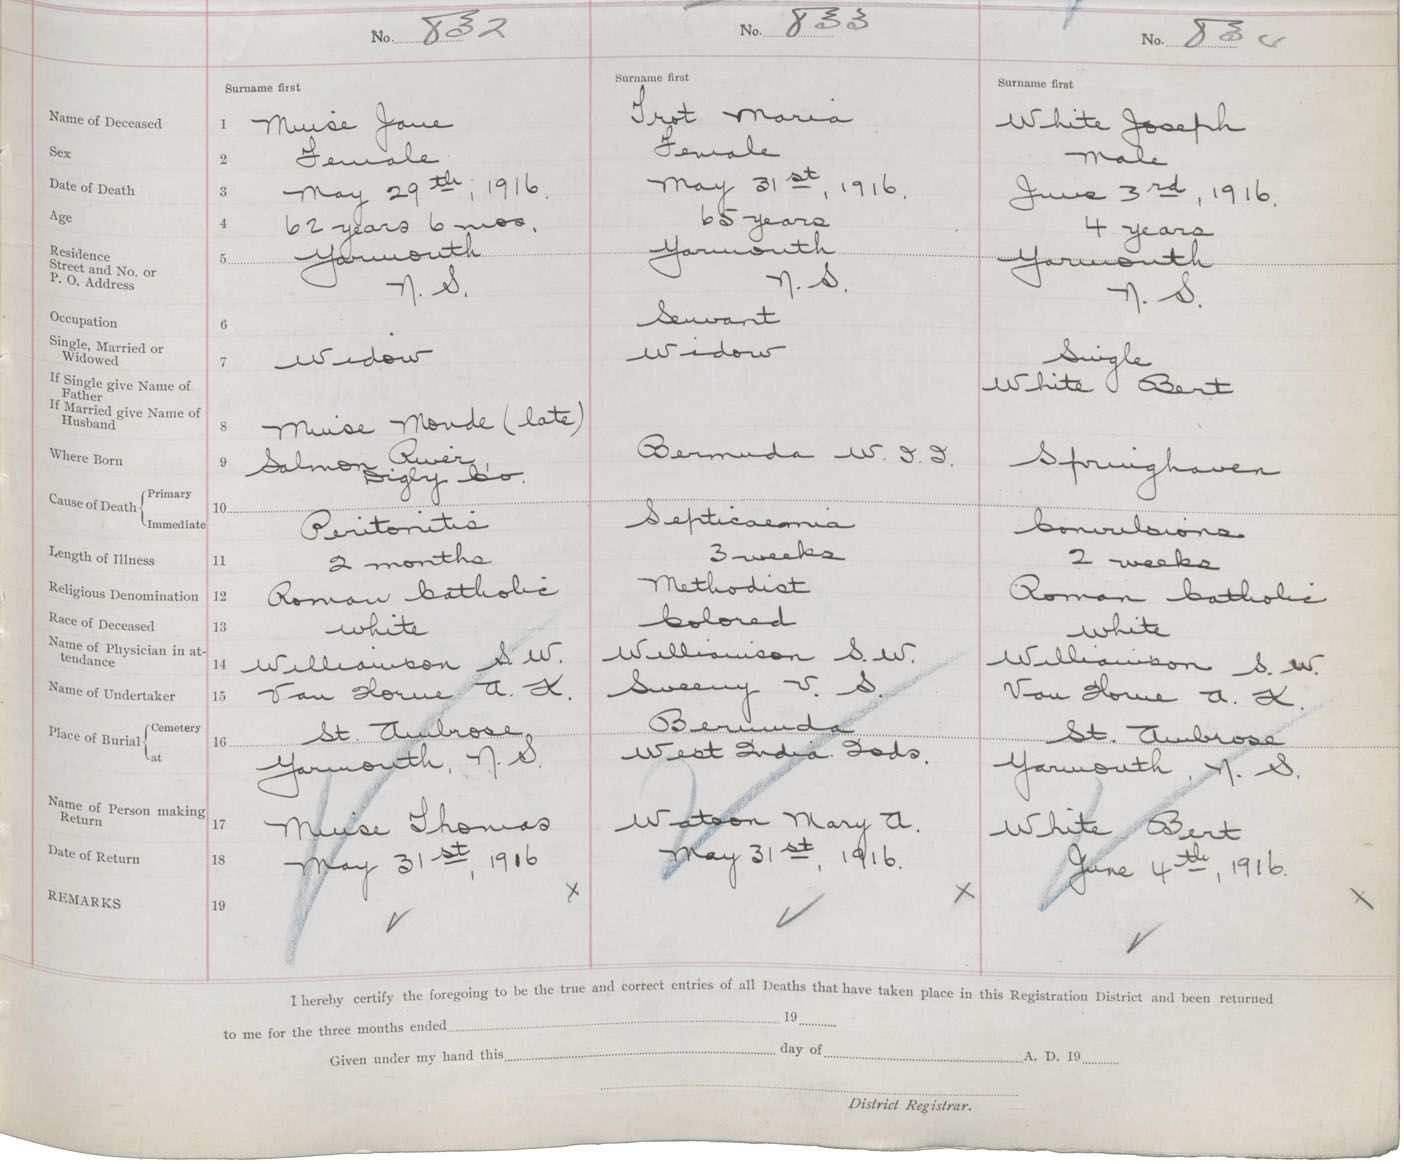 No. 832 No. 833 No. 834
Surname first Surname first Surname first
Name of Deceased 1 Muise Jane Trot Maria White Joseph
Sex 2 Female Female Male
Date of Death 3 May 29th, 1916. May 31st, 1916. June 3rd, 1916.
Age 4 62 years 6 mos. 65 years 4 years
Residence 5 Yarmouth Yarmouth Yarmouth
Street and No. or
P. O. Address N. S. N. S. N. S.
Occupation 6 Servant
Single, Married or
Widowed 7 Widow Widow Single
If Single give Name of
Father White Bert
If Married give Name of
Husband 8 Muise Monde (late)
Where Born 9 Salmon River Bermuda W. I. I. Springhaven
Digby Co.
Cause of Death { Primary
10
Immediate Peritonitis Septicaemia Convulsions
Length of Illness 11 2 months 3 weeks 2 weeks
Religious Denomination 12 Roman Catholic Methodist Roman Catholic
Race of Deceased 13 White Colored White
Name of Physician in at-
tendance 14 Williamson S. W. Williamson S. W. Williamson S. W.
Name of Undertaker 15 Van Horne A. K. Sweeny V. S. Van Horne A. K.
Place of Burial { Cemetery 16 St. Ambrose Bermuda St. Ambrose
at Yarmouth, N. S. West India Isds. Yarmouth, N. S.
Name of Person making
Return 17 Muise Thomas Watson Mary A. White Bert
Date of Return 18 May 31st, 1916 May 31st, 1916. June 4th, 1916.
REMARKS 19 x x x
I hereby certify the foregoing to be the true and correct entries of all Deaths that have taken place in this Registration District and been returned
to me for the three months ended 19
Given under my hand this day of A. D. 19
District Registrar.